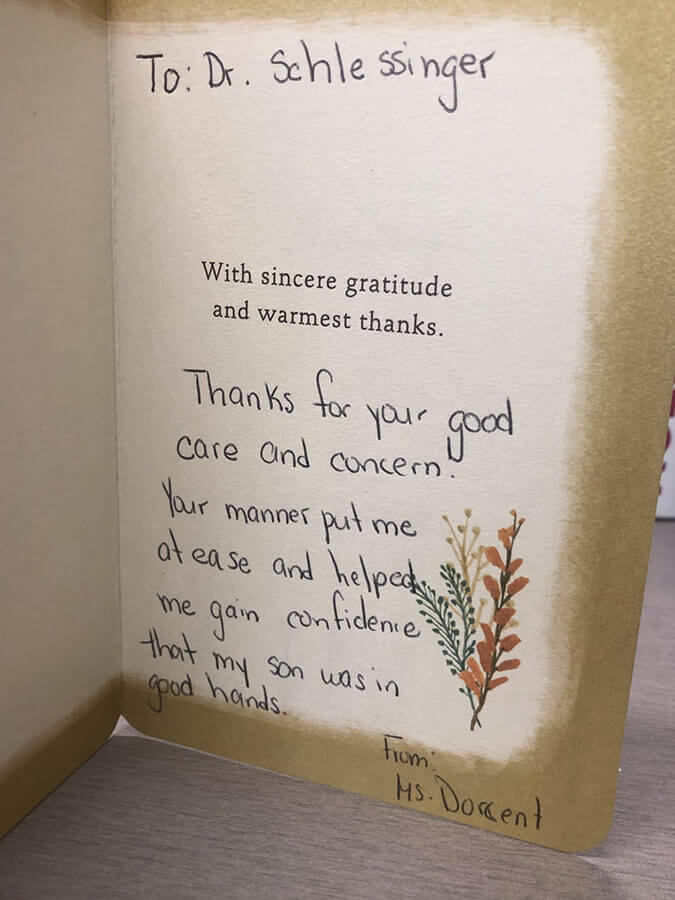 To: Dr. Schlessinger
With sincere gratitude
and warmest thanks.
Thanks for your good
care and concern.
Your manner put me
at ease and helped
me gain confidence
that my son was in
good hands.
From:
Ms.